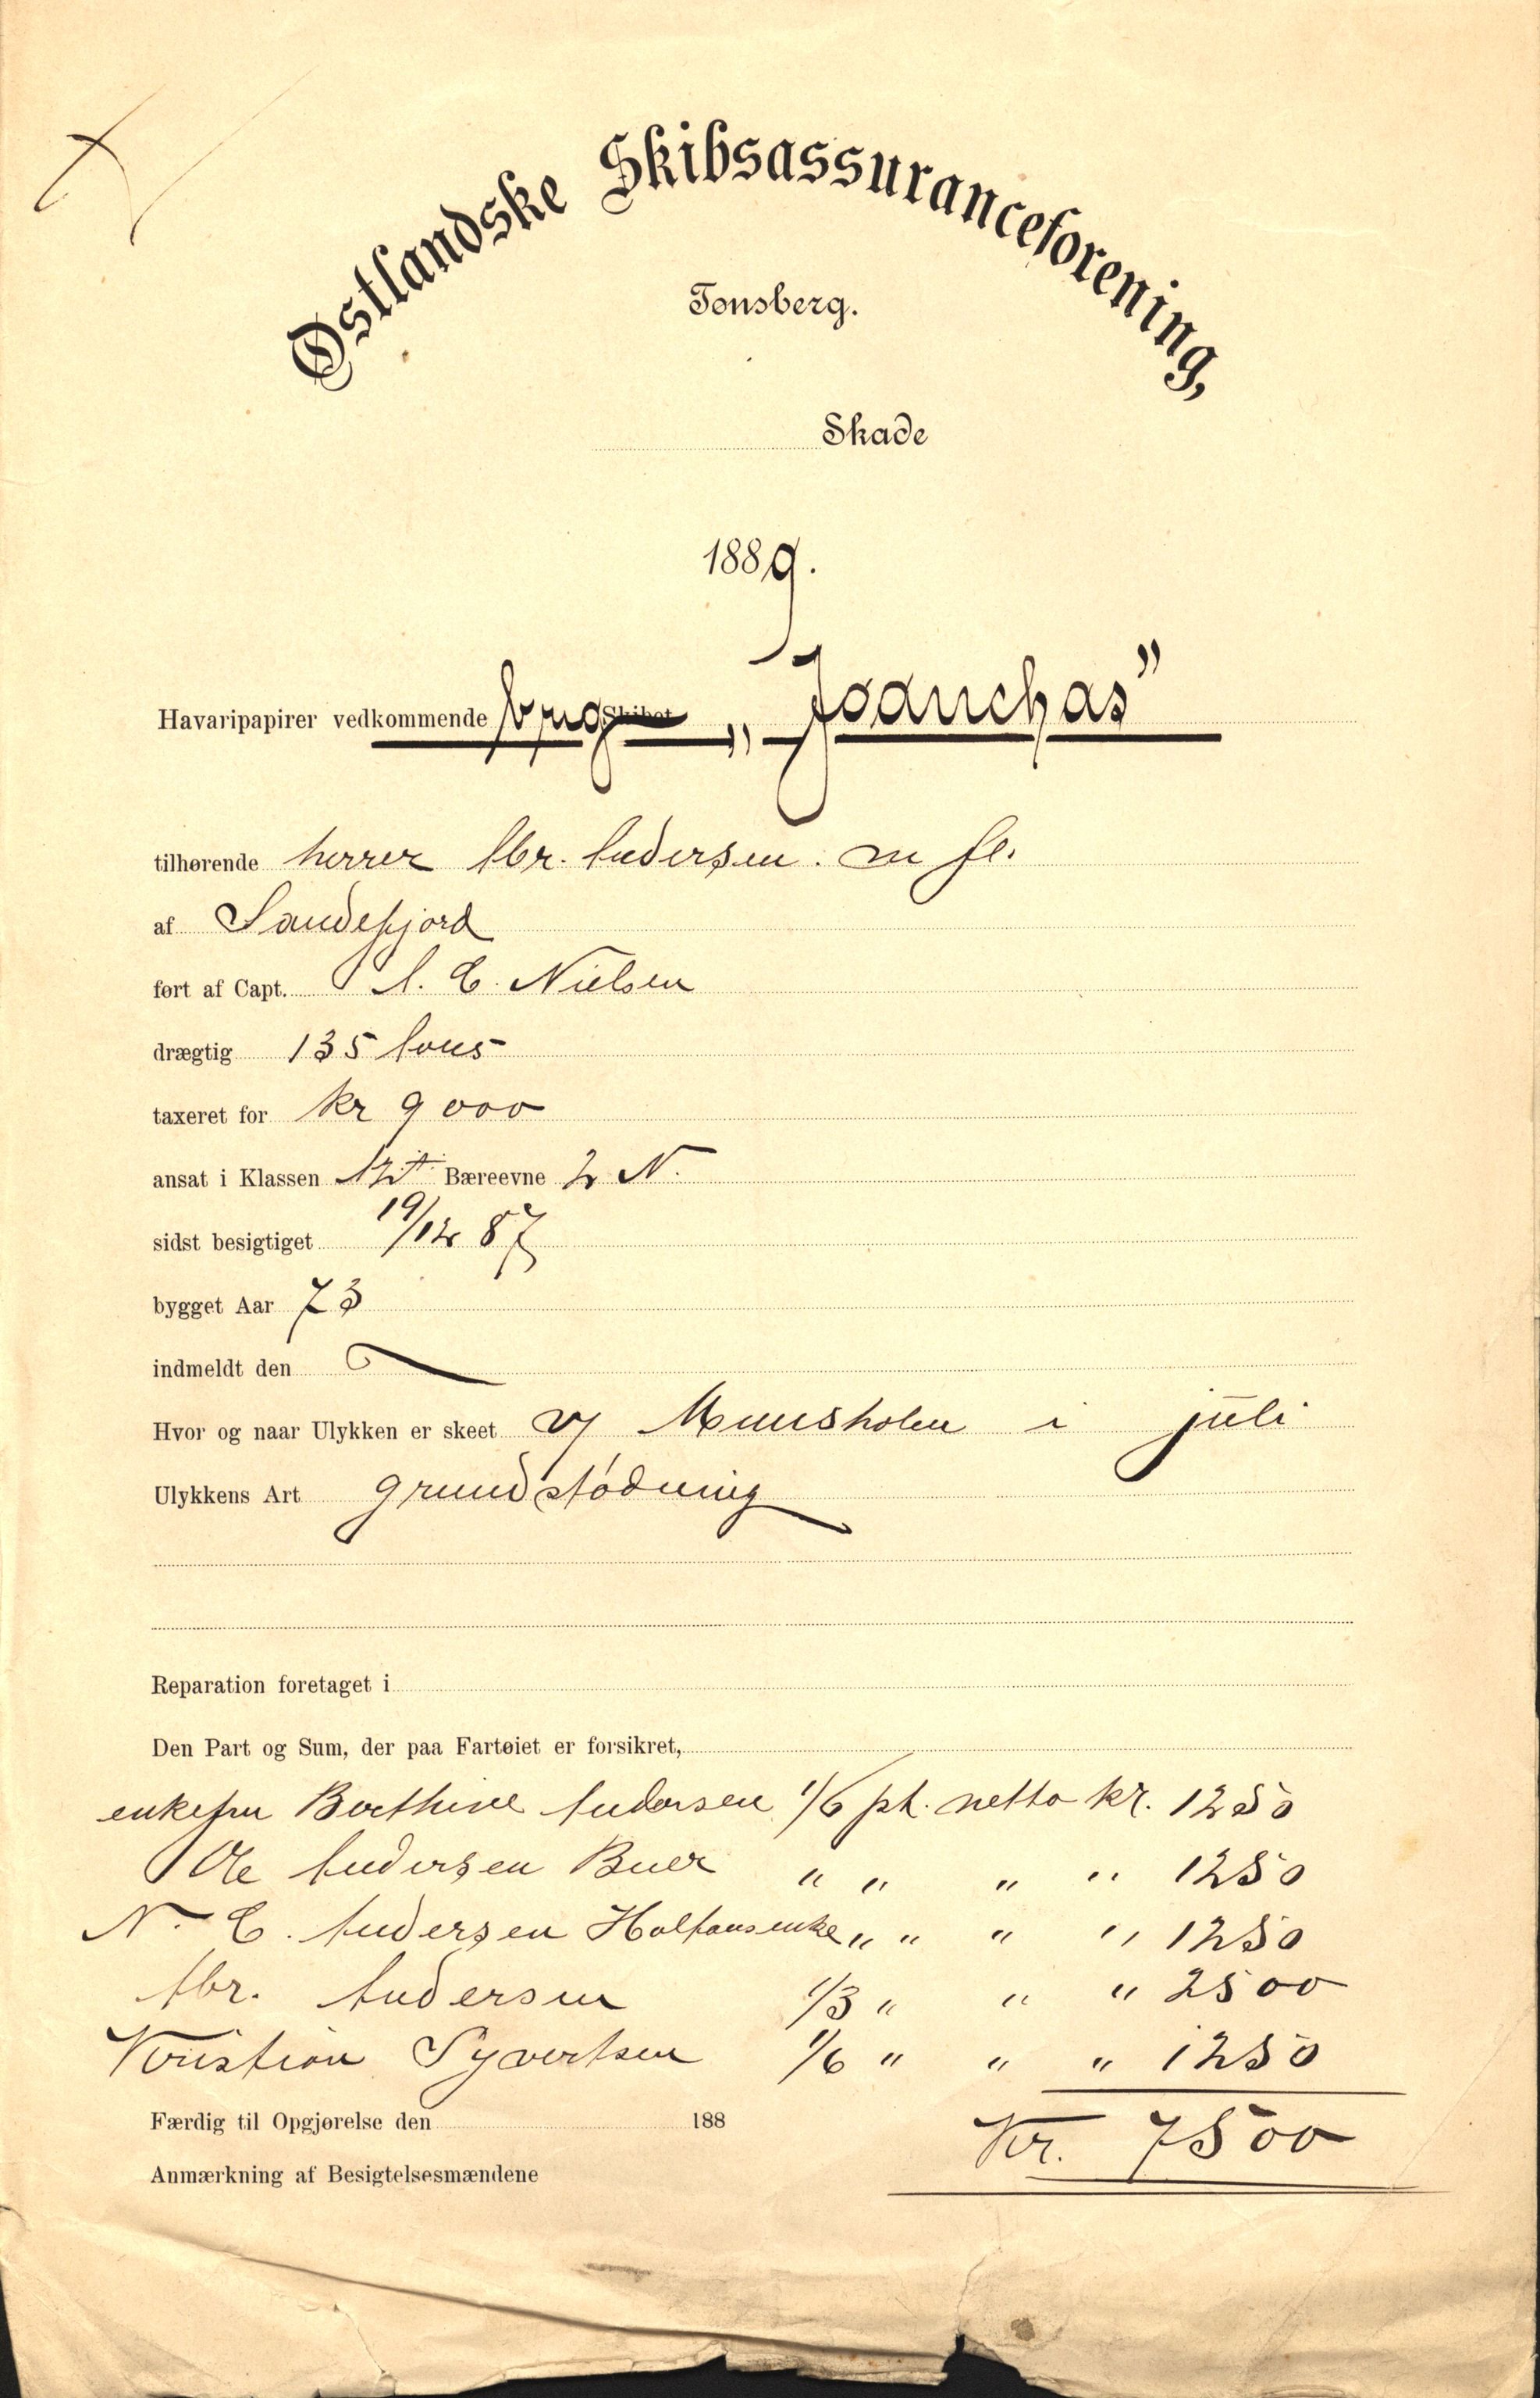 Østlandske Skibsassuranceforening,
Tønsberg.
Skade
1889.
Havaripapirer vedkommende brig Skibet „Joanchas”
tilhørende herrer Abr. Andersen. m fl.
af Sandefjord
ført af Capt. A. C. Nielsen
drægtig 135 tons
taxeret for kr 9000
ansat i Klassen Bæreevne 2 N.
sidst besigtiget 19/12 87
bygget Aar 73
indmeldt den
Hvor og naar Ulykken er skeet v/ Munsholm i juli
Ulykkens Art grundstødning
Reparation foretaget i
Den Part og Sum, der paa Fartøiet er forsikret,
enkefru Berthine Andersen 1/6 pt. netto kr. 1250
Ole Andersen Buer " " " " 1250
N. C. Andersen Holtans enke " " " " 1250
Abr. Andersen 1/3 " " " 2500
Kristian Syvertsen 1/6 " " " 1250
Færdig til Opgjørelse den 188
Kr. 7500
Anmærkning af Besigtelsesmændene